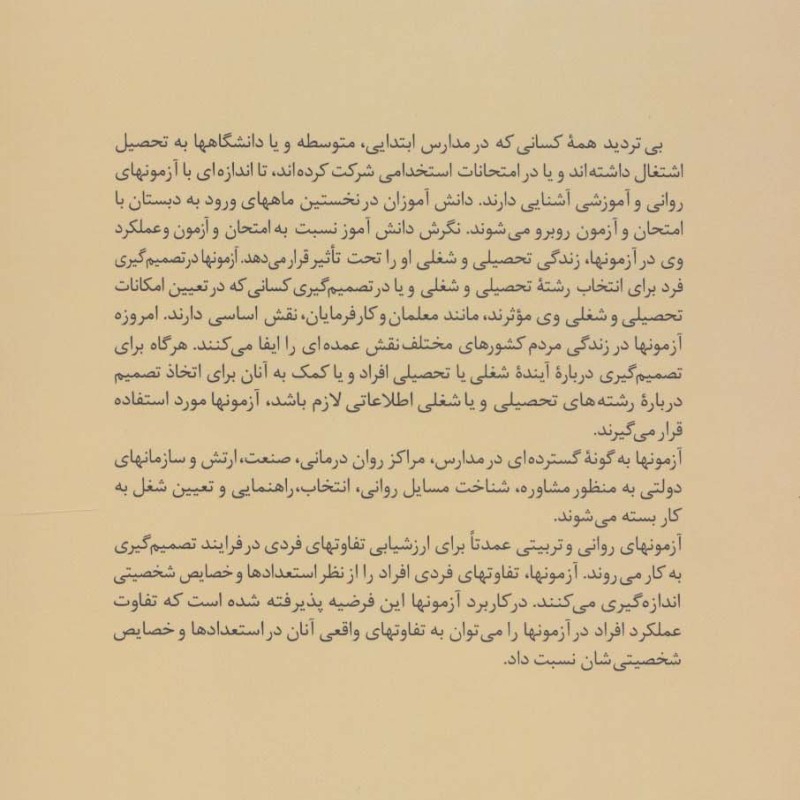 بی تردید همهٔ کسانی که در مدارس ابتدایی، متوسطه و یا دانشگاهها به تحصیل
اشتغال داشته‌اند و یا در امتحانات استخدامی شرکت کرده‌اند، تا اندازه‌ای با آزمونهای
روانی و آموزشی آشنایی دارند. دانش آموزان در نخستین ماههای ورود به دبستان با
امتحان و آزمون روبرو می‌شوند. نگرش دانش آموز نسبت به امتحان و آزمون و عملکرد
وی در آزمونها، زندگی تحصیلی و شغلی او را تحت تأثیر قرار می‌دهد. آزمونها در تصمیم‌گیری
فرد برای انتخاب رشتهٔ تحصیلی و شغلی و یا در تصمیم‌گیری کسانی که در تعیین امکانات
تحصیلی و شغلی وی مؤثرند، مانند معلمان و کارفرمایان، نقش اساسی دارند. امروزه
آزمونها در زندگی مردم کشورهای مختلف نقش عمده‌ای را ایفا می‌کنند. هرگاه برای
تصمیم‌گیری دربارهٔ آیندهٔ شغلی یا تحصیلی افراد و یا کمک به آنان برای اتخاذ تصمیم
دربارهٔ رشته‌های تحصیلی و یا شغلی اطلاعاتی لازم باشد، آزمونها مورد استفاده
قرار می‌گیرند.
آزمونها به گونهٔ گسترده‌ای در مدارس، مراکز روان درمانی، صنعت، ارتش و سازمانهای
دولتی به منظور مشاوره، شناخت مسایل روانی، انتخاب، راهنمایی و تعیین شغل به
کار بسته می‌شوند.
آزمونهای روانی و تربیتی عمدتاً برای ارزشیابی تفاوتهای فردی در فرایند تصمیم‌گیری
به کار می‌روند. آزمونها، تفاوتهای فردی افراد را از نظر استعدادها و خصایص شخصیتی
اندازه‌گیری می‌کنند. در کاربرد آزمونها این فرضیه پذیرفته شده است که تفاوت
عملکرد افراد در آزمونها را می‌توان به تفاوتهای واقعی آنان در استعدادها و خصایص
شخصیتی‌شان نسبت داد.